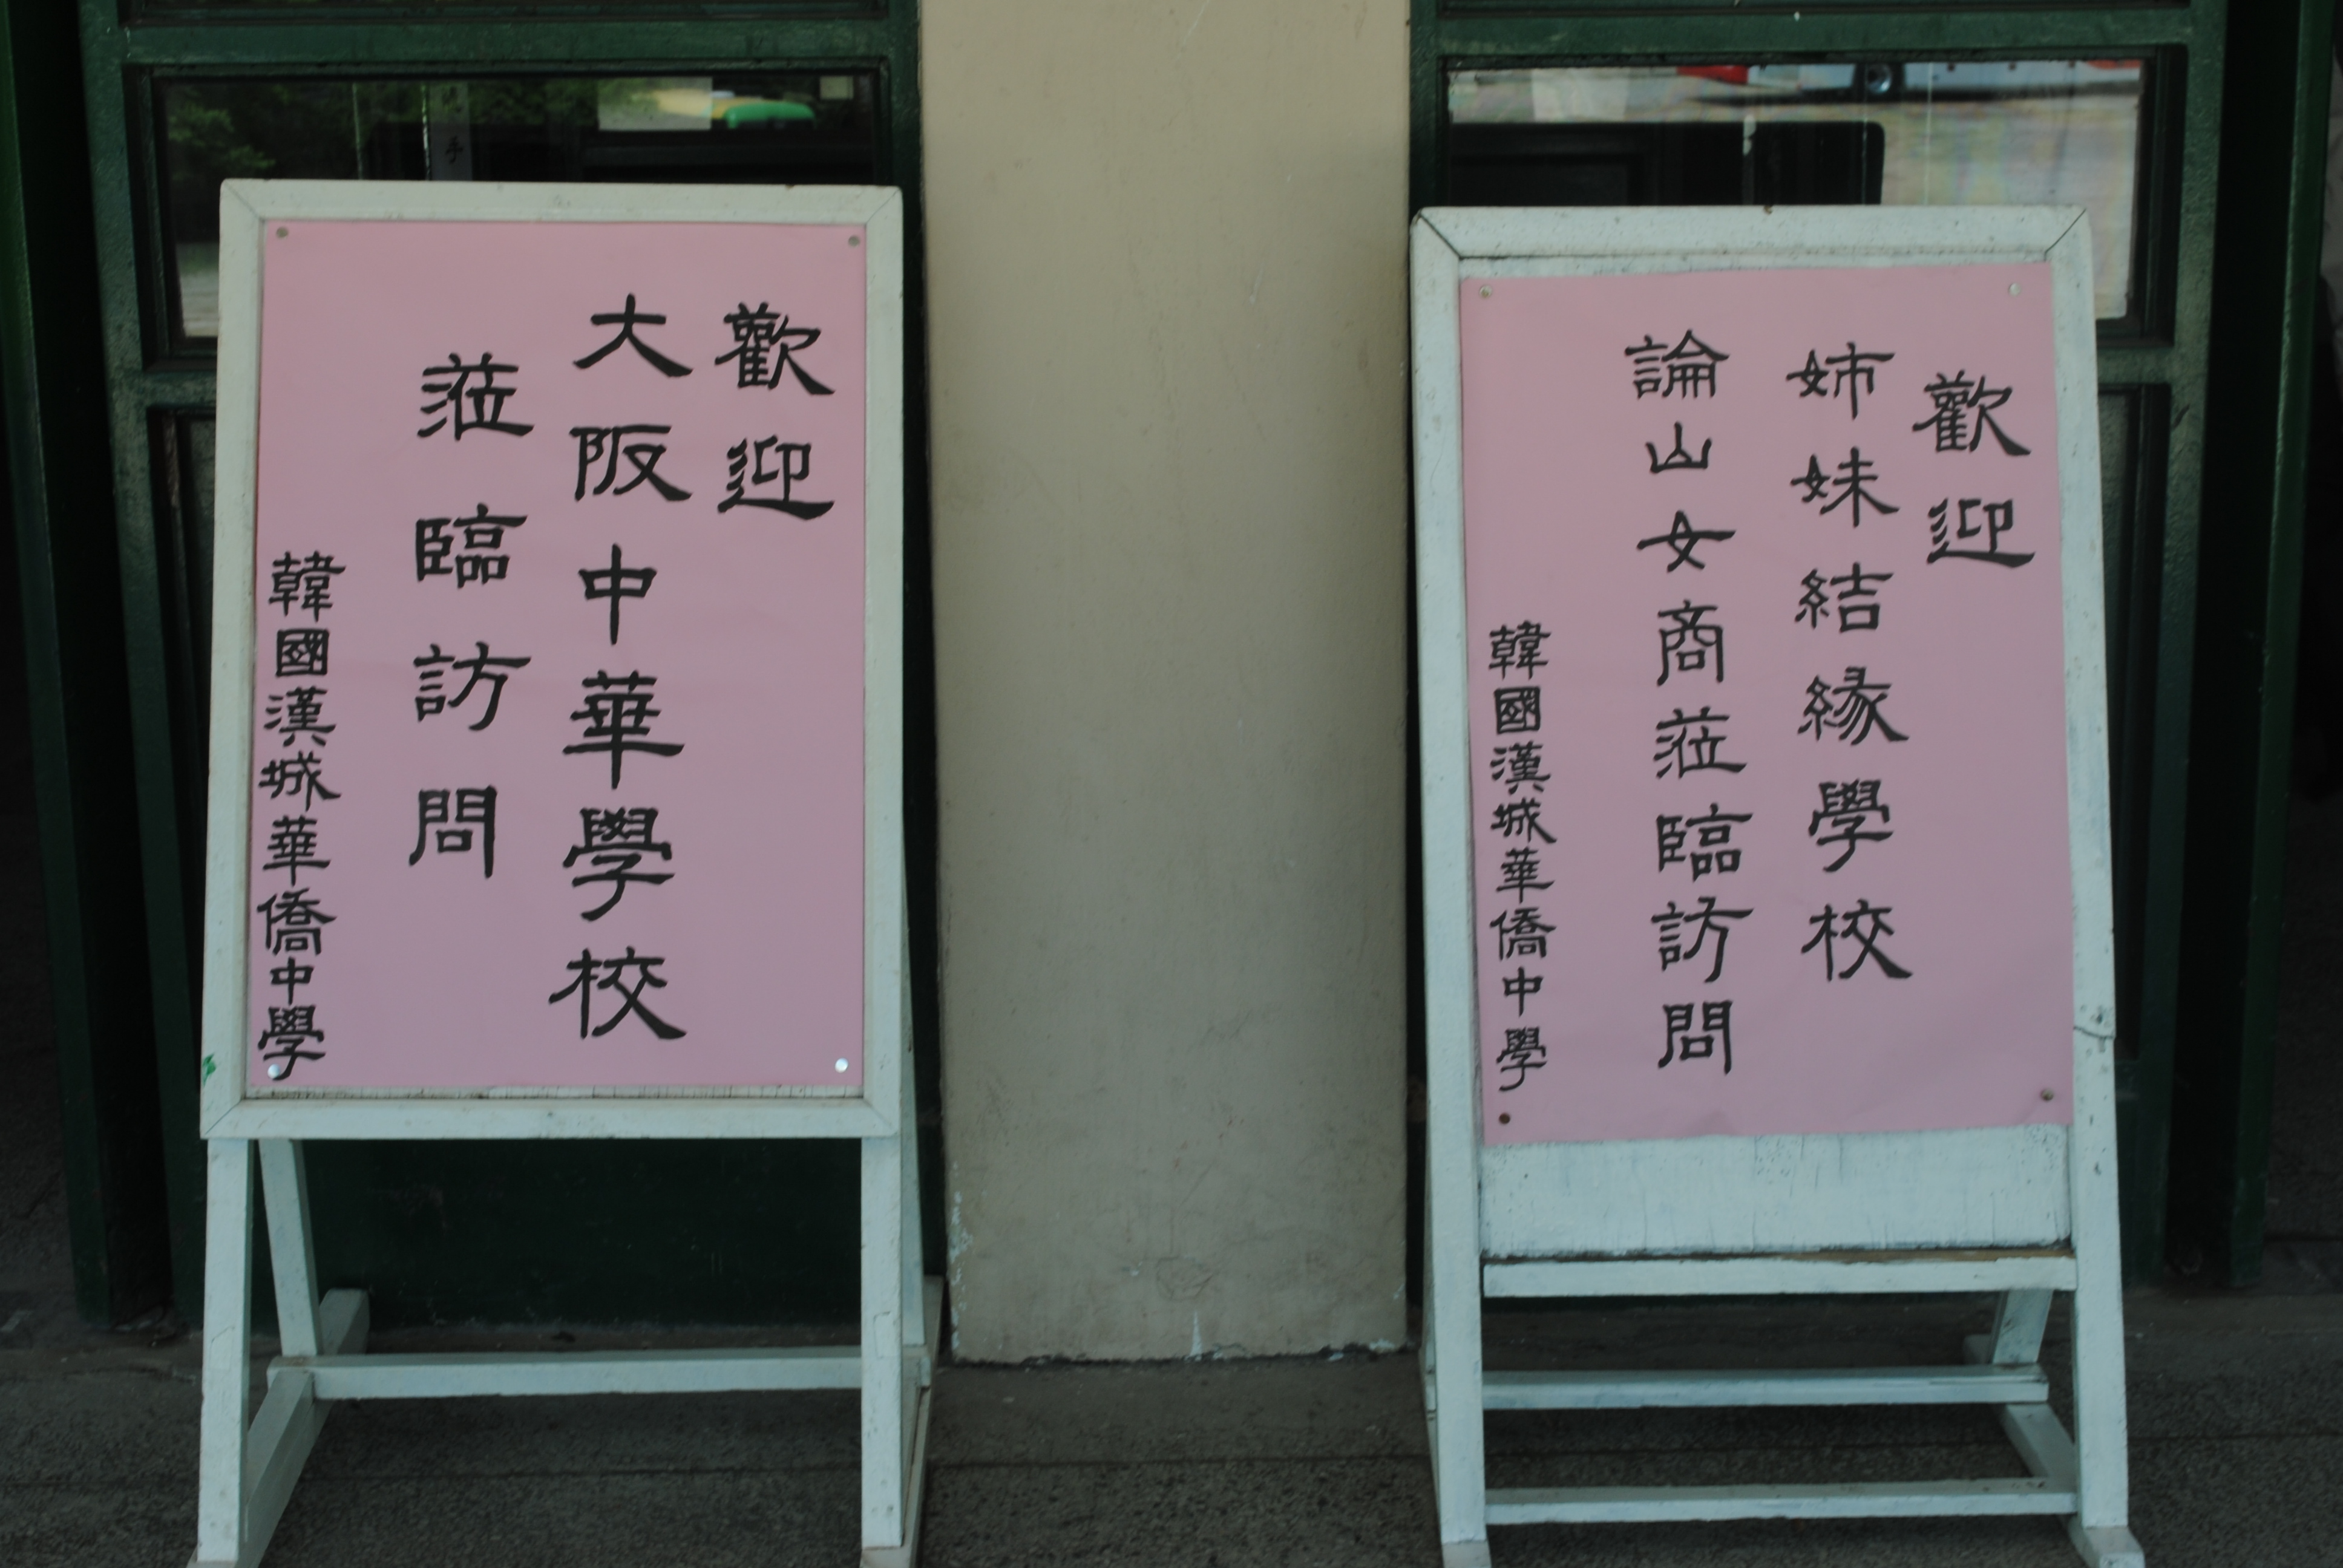 歡迎
大阪中華學校
蒞臨訪問
韓國漢城華僑中學
歡迎
姉妹結緣學校
論山女商蒞臨訪問
韓國漢城華僑中學
手